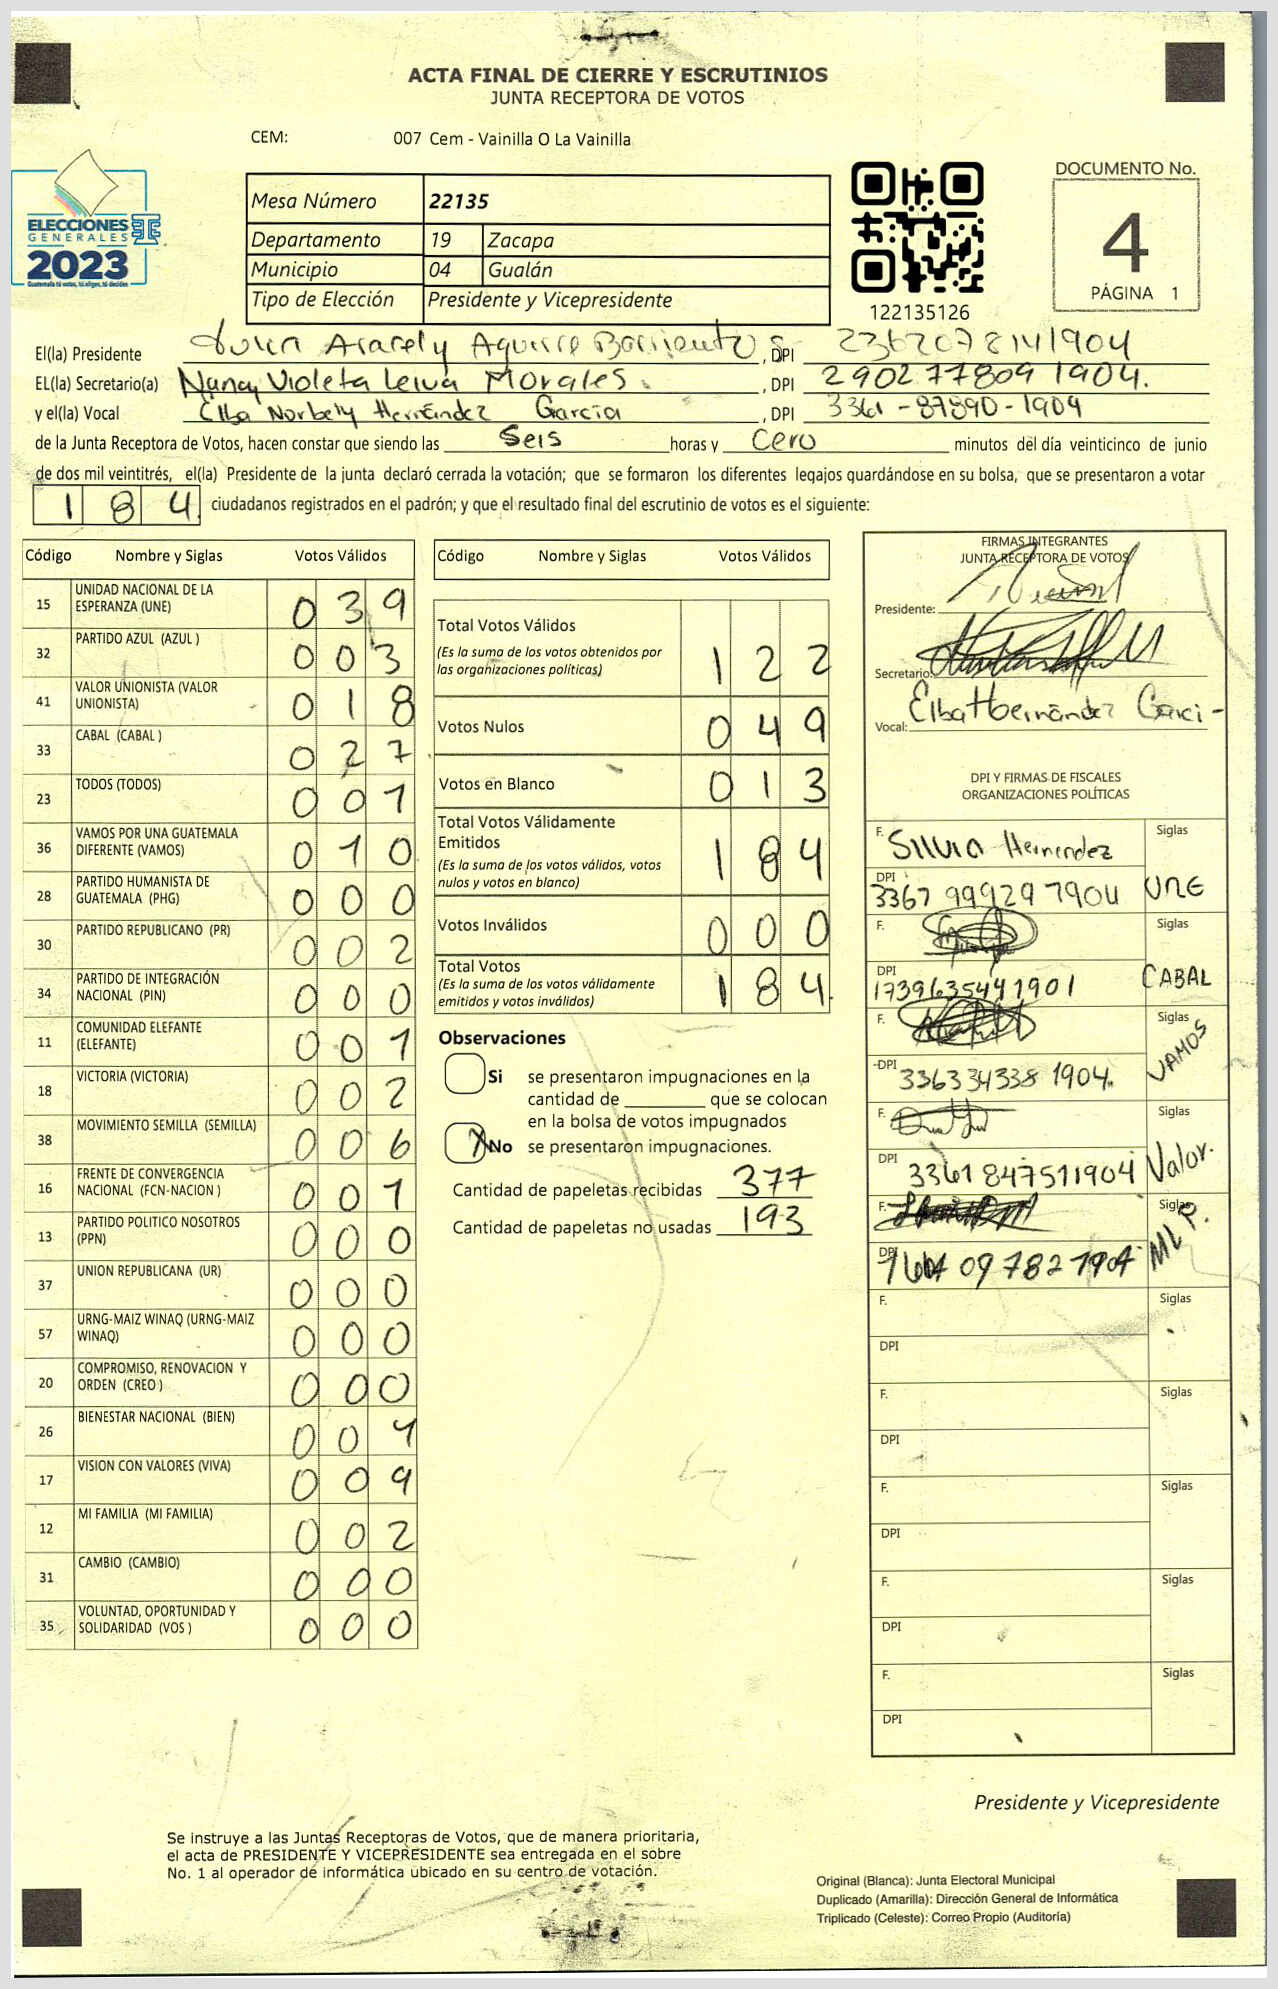 ACTA FINAL DE CIERRE Y ESCRUTINIOS
JUNTA RECEPTORA DE VOTOS
CEM: 007 Cem - Vainilla O La Vainilla
ELECCIONES
GENERALES
2023
Guatemala tú votas, tú eliges, tú decides
Mesa Número 22135
Departamento 19 Zacapa
Municipio 04 Gualán
Tipo de Elección Presidente y Vicepresidente
122135126
DOCUMENTO No.
4
PÁGINA 1
El(la) Presidente Aracely Aguirre Barrientos, DPI 2362078141904
EL(la) Secretario(a) Nancy Violeta Leiva Morales. , DPI 2902778091904.
y el(la) Vocal Elba Norbely Hernández García , DPI 3361-87890-1904
de la Junta Receptora de Votos, hacen constar que siendo las Seis horas y Cero minutos del día veinticinco de junio
de dos mil veintitrés, el(la) Presidente de la junta declaró cerrada la votación; que se formaron los diferentes legajos guardándose en su bolsa, que se presentaron a votar
184 ciudadanos registrados en el padrón; y que el resultado final del escrutinio de votos es el siguiente:
Código Nombre y Siglas Votos Válidos
15 UNIDAD NACIONAL DE LA ESPERANZA (UNE) 039
32 PARTIDO AZUL (AZUL ) 003
41 VALOR UNIONISTA (VALOR UNIONISTA) 018
33 CABAL (CABAL ) 027
23 TODOS (TODOS) 001
36 VAMOS POR UNA GUATEMALA DIFERENTE (VAMOS) 010
28 PARTIDO HUMANISTA DE GUATEMALA (PHG) 000
30 PARTIDO REPUBLICANO (PR) 002
34 PARTIDO DE INTEGRACIÓN NACIONAL (PIN) 000
11 COMUNIDAD ELEFANTE (ELEFANTE) 001
18 VICTORIA (VICTORIA) 002
38 MOVIMIENTO SEMILLA (SEMILLA) 006
16 FRENTE DE CONVERGENCIA NACIONAL (FCN-NACION ) 001
13 PARTIDO POLITICO NOSOTROS (PPN) 000
37 UNION REPUBLICANA (UR) 000
57 URNG-MAIZ WINAQ (URNG-MAIZ WINAQ) 000
20 COMPROMISO, RENOVACION Y ORDEN (CREO ) 000
26 BIENESTAR NACIONAL (BIEN) 001
17 VISION CON VALORES (VIVA) 009
12 MI FAMILIA (MI FAMILIA) 002
31 CAMBIO (CAMBIO) 000
35 VOLUNTAD, OPORTUNIDAD Y SOLIDARIDAD (VOS ) 000
Código Nombre y Siglas Votos Válidos
Total Votos Válidos 122
(Es la suma de los votos obtenidos por
las organizaciones políticas)
Votos Nulos 049
Votos en Blanco 013
Total Votos Válidamente
Emitidos 184
(Es la suma de los votos válidos, votos
nulos y votos en blanco)
Votos Inválidos 000
Total Votos 184.
(Es la suma de los votos válidamente
emitidos y votos inválidos)
Observaciones
Si se presentaron impugnaciones en la
cantidad de ________ que se colocan
en la bolsa de votos impugnados
X No se presentaron impugnaciones.
Cantidad de papeletas recibidas 377
Cantidad de papeletas no usadas 193
FIRMAS INTEGRANTES
JUNTA RECEPTORA DE VOTOS
Presidente:
Secretario:
Vocal: Elba Hernández Garci-
DPI Y FIRMAS DE FISCALES
ORGANIZACIONES POLÍTICAS
F. Silvia Hernendez Siglas
DPI 3367 99929 7904 UNE
F. Siglas
DPI 1739635441901 CABAL
F. Siglas
DPI 336334338 1904. VAMOS
F. Siglas
DPI 3361847511904 Valor.
F. Siglas
DPI 09782 1904 MLP.
F. Siglas
DPI
F. Siglas
DPI
F. Siglas
DPI
F. Siglas
DPI
F. Siglas
DPI
Presidente y Vicepresidente
Se instruye a las Juntas Receptoras de Votos, que de manera prioritaria,
el acta de PRESIDENTE Y VICEPRESIDENTE sea entregada en el sobre
No. 1 al operador de informática ubicado en su centro de votación.
Original (Blanca): Junta Electoral Municipal
Duplicado (Amarilla): Dirección General de Informática
Triplicado (Celeste): Correo Propio (Auditoría)